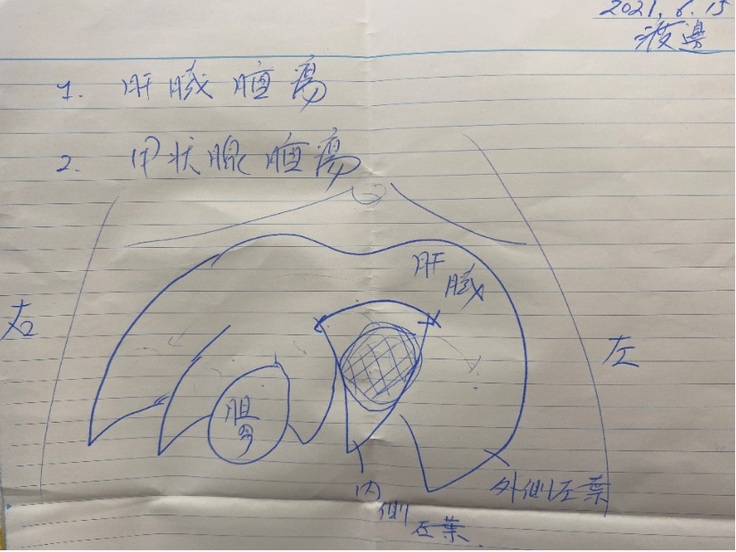 2021.6.15
渡邊
1. 肝臓腫瘍
2. 甲状腺腫瘍
肝臓
右
左
胆のう
外側左葉
内側左葉